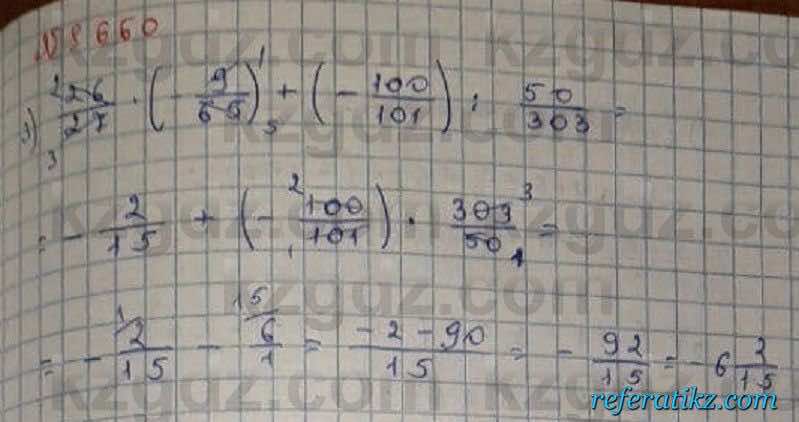 № 660
1) 26/27 · (- 9/65) + (- 100/101) : 50/303 =
= - 2/15 + (- 100/101) · 303/50 =
= - 2/15 - 6/1 = (-2-90)/15 = - 92/15 = - 6 2/15
referatikz.com